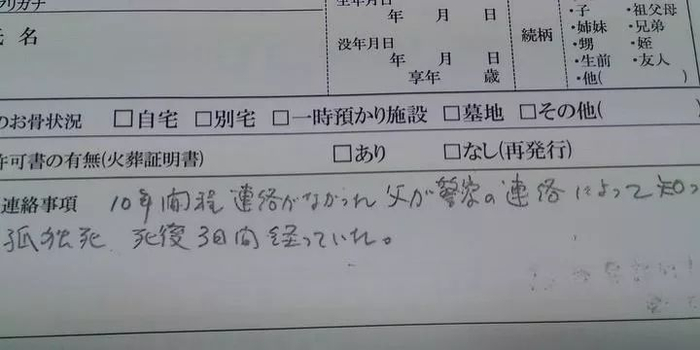 フリガナ
氏 名
生年月日
年 月 日
没年月日
年 月 日
享年 歳
続柄
・子 ・祖父母
・姉妹 ・兄弟
・甥 ・姪
・生前 ・友人
・他( )
のお骨状況 □自宅 □別宅 □一時預かり施設 □墓地 □その他(
許可書の有無(火葬証明書) □あり □なし(再発行)
連絡事項 10年間程連絡がなかった父が警察の連絡によって知っ
孤独死 死後3日間経っていた。